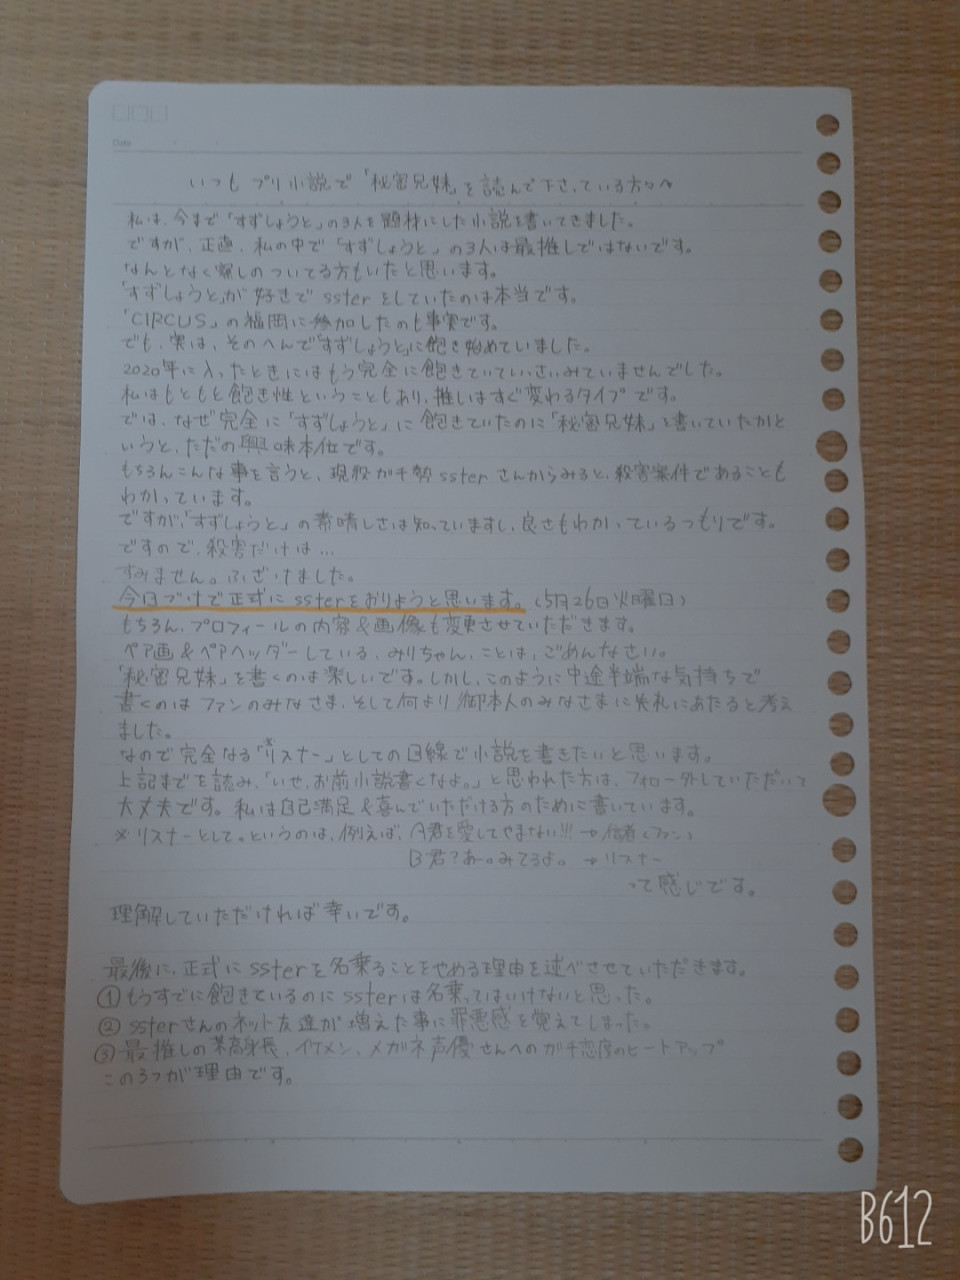 Date
いつも プリ小説で「秘密兄妹」を読んで下さっている方々へ
私は、今まで「すずしょうと」の3人を題材にした小説を書いてきました。
ですが、正直、私の中で「すずしょうと」の3人は最推しではないです。
なんとなく察しのついてる方もいたと思います。
「すずしょうと」が好きで ssterをしていたのは本当です。
「CIRCUS」の福岡に参加したのも事実です。
でも、実は、そのへんで「すずしょうと」に飽き始めていました。
2020年に入ったときにはもう完全に飽きていて、さいみていませんでした。
私はもともと飽き性ということもあり、推しはすぐ変わるタイプです。
では、なぜ完全に「すずしょうと」に飽きていたのに「秘密兄妹」を書いていたかと
いうと、ただの興味本位です。
もちろんこんな事を言うと、現役ガチ勢ssterさんからみると、殺害案件であることも
わかっています。
ですが、「すずしょうと」の素晴しさは知っていますし、良さもわかっているつもりです。
ですので、殺害だけは…
すみません。ふざけました。
今日づけで正式にssterをおりようと思います。(5月26日火曜日)
もちろん、プロフィールの内容&画像も変更させていただきます。
ペア画&ペアヘッダーしている、みりちゃん、ことは、ごめんなさい。
「秘密兄妹」を書くのは楽しいです。しかし、このように中途半端な気持ちで
書くのはファンのみなさま、そして何より御本人のみなさまに失礼にあたると考え
ました。
なので完全なる「※リスナー」としての目線で小説を書きたいと思います。
上記までを読み、「いせ、お前小説書くなよ。」と思われた方は、フォロー外していただいて
大丈夫です。私は自己満足&喜んでいただける方のために書いています。
※リスナーとして。というのは、例えば、A君を愛してやまない!!! → 信者(ファン)
B君?あー。みてるよ。→リスナー
って感じです。
理解していただければ幸いです。
最後に、正式にssterを名乗ることをやめる理由を述べさせていただきます。
①もうすでに飽きているのにssterは名乗ってはいけないと思った。
②ssterさんのネット友達が増えた事に罪悪感を覚えてしまった。
③最推しの某高身長、イケメン、メガネ声優さんへのガチ恋度のヒートアップ
この3つが理由です。
B612